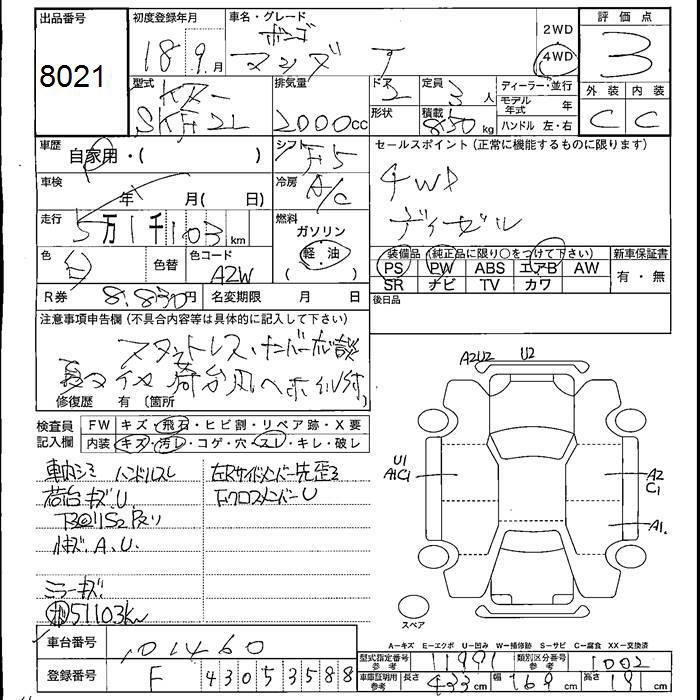 出品番号
8021
初度登録年月
18 9月
車名・グレード
ボンゴ
2WD
4WD
評価点
3
外装 内装
C C
型式
KR-
SKF2L
排気量
2000cc
ドア
2
形状
定員
3人
積載
850kg
ディーラー・並行
モデル年式 年
ハンドル 左・右
車歴
自家用・( )
シフト
F5
セールスポイント (正常に機能するものに限ります)
4WD
ディーゼル
車検
年 月( 日)
冷房
A/C
走行
5万1千103km
燃料
ガソリン
軽・油
( )
色
色替
色コード
A2W
装備品 (純正品に限り○をつけて下さい)
PS PW ABS エアB AW
SR ナビ TV カワ
新車保証書
有・無
R券
8,830円
名変期限 月 日
後日品
注意事項申告欄 (不具合内容等は具体的に記入して下さい)
修復歴 有 (箇所
検査員記入欄
FW キズ・飛石・ヒビ割・リペア跡・X要
内装 キズ・汚レ・コゲ・穴・スレ・キレ・破レ
車内シミ ハンドルスレ
荷台キズ.U.
小キズ.A.U.
ミラーキズ
51103km
左Rサイドメンバー先歪
下クロスメンバーU
A2U2 U2
U1
A1C1
A2
C1
A1.
スペア
A-キズ E-エクボ U-凹み W-補修跡 S-サビ C-腐食 XX-交換済
車台番号
101460
登録番号
F 43053588
型式指定番号 参考
11991
類別区分番号 参考
1002
車庫証明用 参考
長さ 433cm 幅 169cm 高さ 191cm